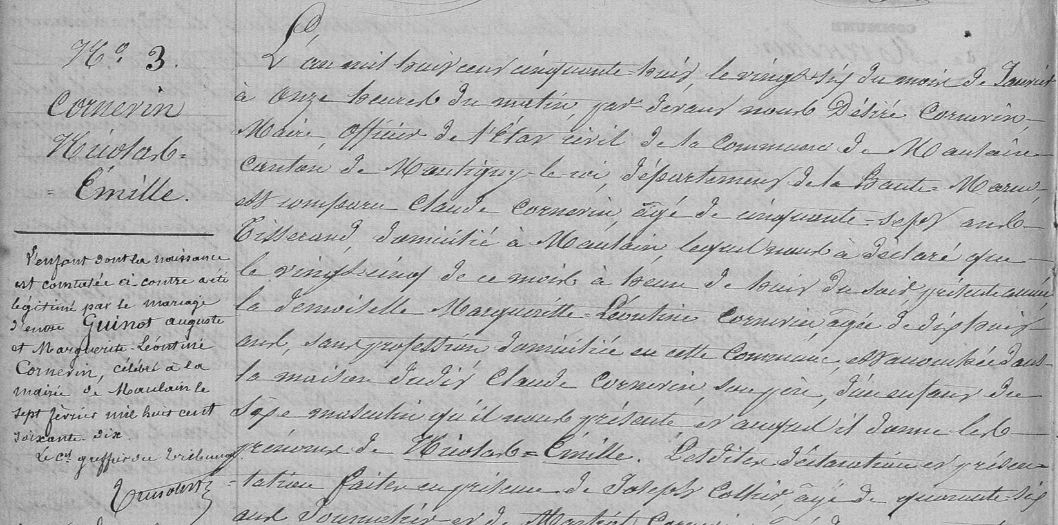 N.o 3.
Cornevin
Nicolas=
=Émille.
L'enfant dont la naissance
est constatée ci-contre a été
légitimé par le mariage
d'entre Guinot auguste
et Marguerite Léontine
Cornevin, célébré à la
mairie de Maulain le
sept février mil huit cent
soixante dix
Le c.is greffier du tribunal
L'an mil huit cent cinquante huit, le vingt six du mois de Janvier
à onze heures du matin, par-devant nous Désiré Cornevin,
Maire, officier de l'État civil de la commune de Maulain
canton de Montigny-le-roi, département de la haute-Marne,
est comparu Claude Cornevin, âgé de cinquante-sept ans
Tisserand, domicilié à Maulain lequel nous à déclaré que
le vingt cinq de ce mois à heure de huit du soir présente année
la demoiselle Margueritte-Léontine Cornevin âgée de dix huit
ans, sans profession domiciliée en cette Commune, est accouchée dans
la maison dudit Claude Cornevin son père, d'un enfant du
sexe masculin qu'il nous présente et auquel il donne les
prénoms de Nicolas=Émille. Lesdites déclaration et présen-
-tation faites en présence de Joseph âgé de quarante-six
ans et de